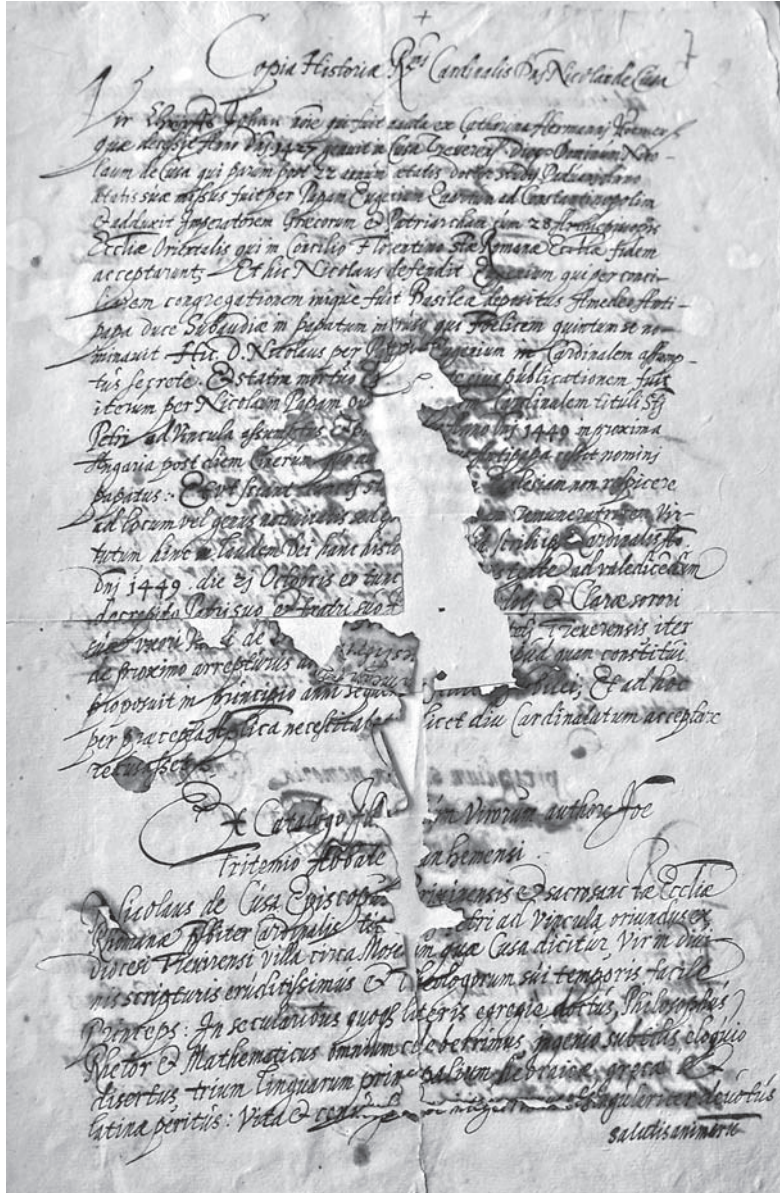 Copia Historiæ Rmi Cardinalis Dni Nicolai de Cusa
Vir Johan noie qui fuit nauta ex Catharina Hermannj
quæ decessit Ano Dnj 1427 genuit in Cusa Treverens. Dioc. Dominum Nico-
laum de Cusa qui parum post 22 annum ætatis doctor Studij Paduanj Anno
ætatis suæ missus fuit per Papam Eugenium Quartum ad Constantinopolim
& adduxit Imperatorem Græcorum & Patriarcham cum 28 Archiepiscopis
Ecclìæ Orientalis qui in Concilio Florentino Stæ Romanæ Ecclìæ fidem
acceptarunt; Et hic Nicolaus defendit Eugenium qui per conci-
liarem congregationem inique fuit Basileæ depositus Amedeo Anti-
papa duce Subaudiæ in papatum intruso qui Foelicem quintum se no-
minauit. Hic D. Nicolaus per Eugenium in Cardinalem assump-
tus secrete. & statim mortuo eius publicationem fuit
iterum per Nicolaum Papam Cardinalem tituli Sti
Petri ad Vincula assumptus Anno Dnj 1449 in proxima
Angaria post diem Cinerum Antipapa cessit nominj
papatus: Et ut sciant Ecclesiam non respicere
ad locum vel genus nativitatis sed remuneratricem vir-
tutum hinc in laudem Dei hanc histo scribi Cardinalis Ao.
Dnj 1449. die 21 Octobris eo tunc ad valedicendum
decrepito Patri suo & fratri suo & Claræ sorori
suæ uxori de Treverensis iter
de proximo arrepturus quam constitui
proposuit in principio anni Et ad hoc
per præcepta necessitabe licet diu Cardinalatum acceptare
recusasset
Ex Catalogo Virorum authore Joe
Tritemio Abbate anhemensi.
Nicolaus de Cusa Episcop rixinensis & sacrosanctæ Ecclìæ
Rhomanæ pbiter Cardinalis tit etri ad Vincula, oriundus ex
diocesi Treverensi villa circa Mose quæ Cusa dicitur, Vir in diui-
nis scripturis eruditissimus & Theologorum sui temporis facile
Princeps: In secularibus quoq; literis egregie doctus, Philosophus,
Rhetor & Mathematicus omnium celeberrimus, ingenio subtilis, eloquio
disertus, trium linguarum principalium hebraicæ, græcæ &
latinæ peritus: Vita & singulariter devotus
salutis animaru